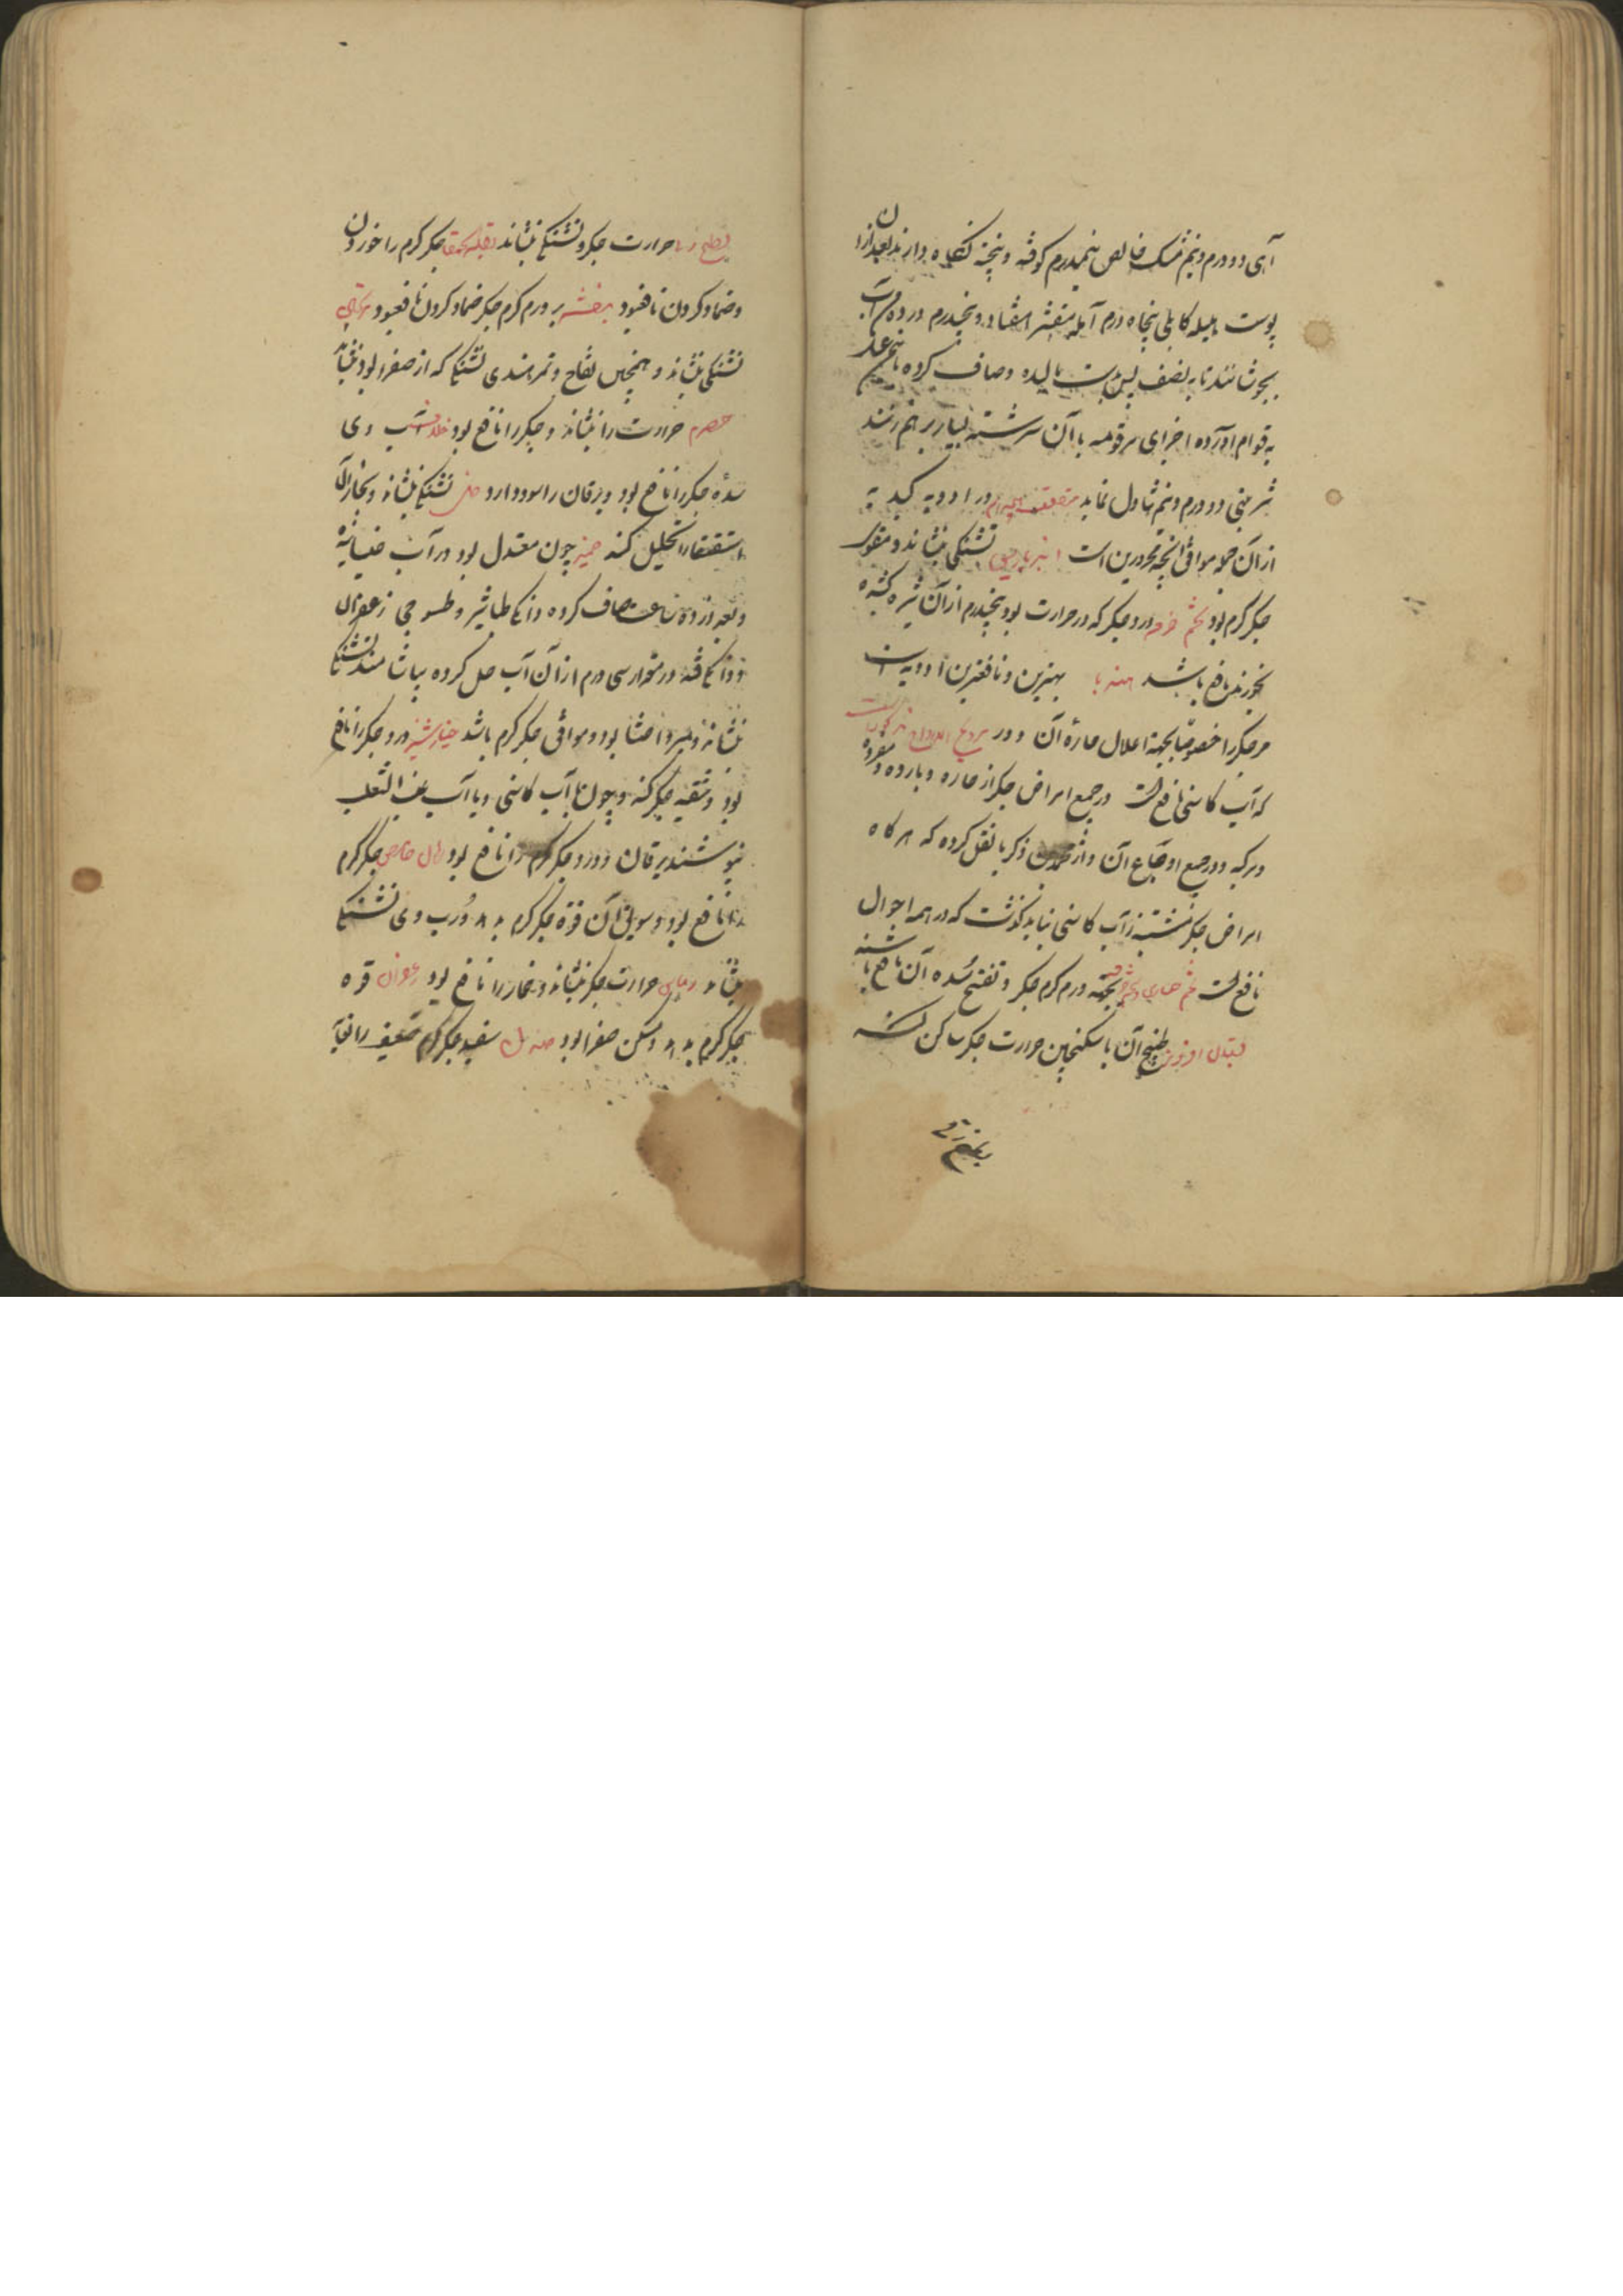 آبی دو درم و نیم مشک خالص نیمدرم کوفته و پخته نگاه دارند بعد از آن
پوست هلیله کابلی پنجاه درم آمله مقشر هفتاد و پنجدرم در ده من آب
بجوشانند تا به نصف پس بدست مالیده و صاف کرده با نیم من عسل
به قوام آورده اجزای مرقومه با آن سرشته بسیار بر هم زنند
شربتی دو درم و نیم تناول نماید در ادویه کبدیه
از آن جمله موافق انچه محرورین است انبرباریس تشنگی بنشاند و مقوی
جگر گرم بود تخم خرفه درد جگر که در حرارت بود پنجدرم از آن شیره کشیده
بخورند نافع باشد هندبا بهترین و نافعترین ادویه است
مر جگر را خصوصا بجهة اعلال حاره آن و در
که آب کاسنی نافع است در جمیع امراض جگر از حاره و بارده و مفرده
و مرکبه و در جمیع اوجاع آن و از محمد بن ذکریا نقل کرده که هر گاه
امراض جگر مشتبه ز آب کاسنی نباید گذشت که در همه احوال
نافع است تخم بجهة ورم گرم جگر و تفتیح سده آن نافع باشد
طبیخ آن با سکنجبین حرارت جگر ساکن کند
حرارت جگر و تشنگی بنشاند بقلة الحمقا جگر گرم را خوردن
و ضماد کردن نافعبود بنفشه بر ورم گرم جگر ضماد کردن نافعبود
تشنگی بنشاند و همچنین تفاح و تمر هندی تشنگی که از صفرا بود بنشاند
حصرم حرارت را بنشاند و جگر را نافع بود خلاف آب وی
سده جگر را نافع بود و یرقان را سود دارد خل تشنگی بنشاند و بخار آن
استسقا را تحلیل کند خمیر چون معتدل بود در آب خیسانیده
و بعد از ده ساعت صاف کرده دانگی طباشیر و طسوجی زعفران
و دانگی قند در مقدار سی درم از آن آب حل کرده بیاشامند تشنگی
بنشاند و مبرد احشا بود و موافق جگر گرم باشد خیارشنبر درد جگر را نافع
بود و تنقیه جگر کند و چون با آب کاسنی و یا آب عنب الثعلب
بنوشند یرقان و درد جگر گرم را نافع بود جگر گرم
را نافع بود و سویق آن قوة جگر گرم بدهد و رب وی تشنگی
بنشاند حرارت جگر بنشاند و خمار را نافع بود زعفران قوه
جگر گرم بدهد و مسکن صفرا بود صندل سفید جگر گرم ضعیف را